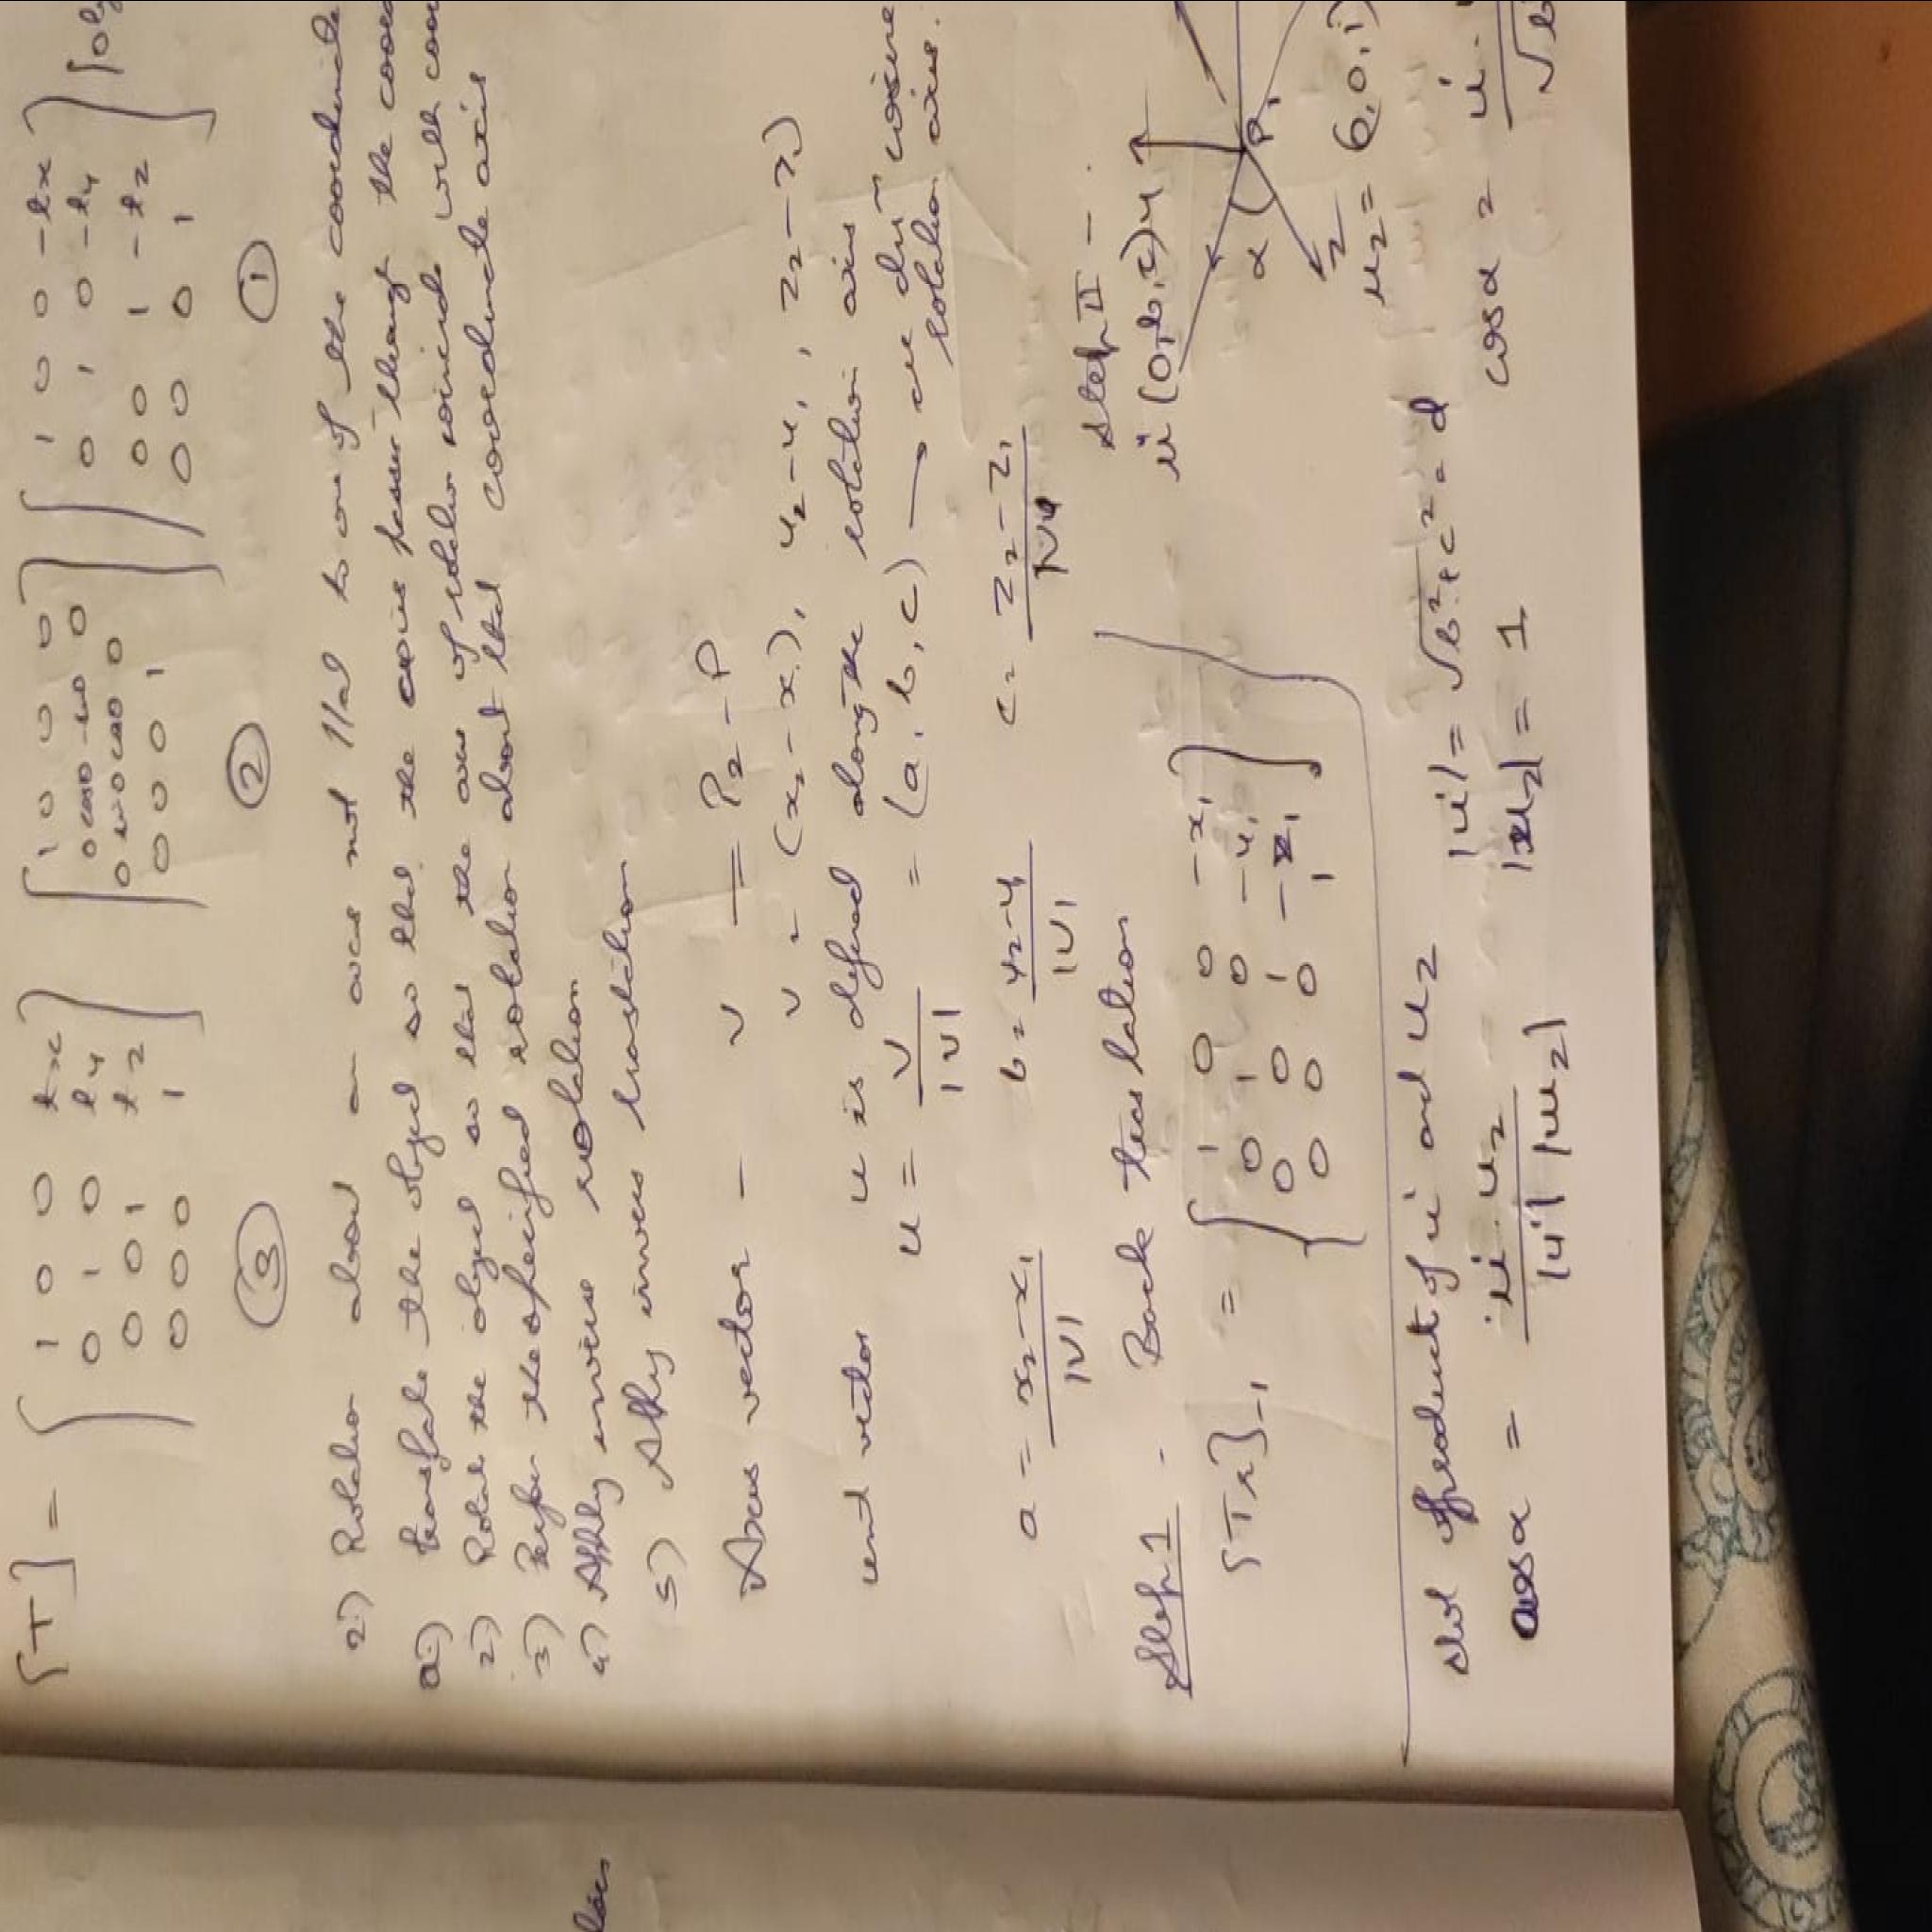 [T] = [1 0 0 tx] [1 0 0 0] [1 0 0 -tx] [obj
[0 1 0 ty] [0 cosθ -sinθ 0] [0 1 0 -ty]
[0 0 1 tz] [0 sinθ cosθ 0] [0 0 1 -tz]
[0 0 0 1] [0 0 0 1] [0 0 0 1]
③ ② ①
2) Rotation about an axis not llal to one of the coordinate
a) translate the object so that the axis passes through the coor
2) Rotate the object so that the axis of rotation coincide with coor
3) Perfor the specified rotation about that coordinate axis
4) Apply inverse rotation
5) Apply invers translation
Axis vector - V = P2 - P
V = (x2 - x1), y2 - y1, z2 - z1)
unit vector u is defined along the rotation axis
u = V / |V| = (a, b, c) → are dirn cosine
rotation axis.
a = x2 - x1 / |V| b = y2 - y1 / |V| c = z2 - z1 / |V|
Step 1 - Back translation
Step II -
u' (0, b, c) y
[Tr]-1 = [1 0 0 -x1]
[0 1 0 -y1]
[0 0 1 -z1]
[0 0 0 1]
α P1
z
uz = (0,0,1)
dot product of u' and uz |u'| = √b²+c² = d
cosα = u'. uz / |u'| |uz| |uz| = 1 cosα = u'. / √b